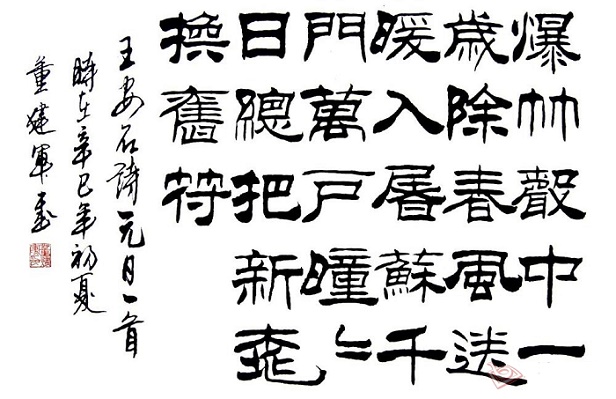 爆竹聲中一
歲除春風送
暖入屠蘇千
門萬戶曈〻
日總把新桃
換舊符
王安石詩元日一首
時在辛巳年初夏
建軍書